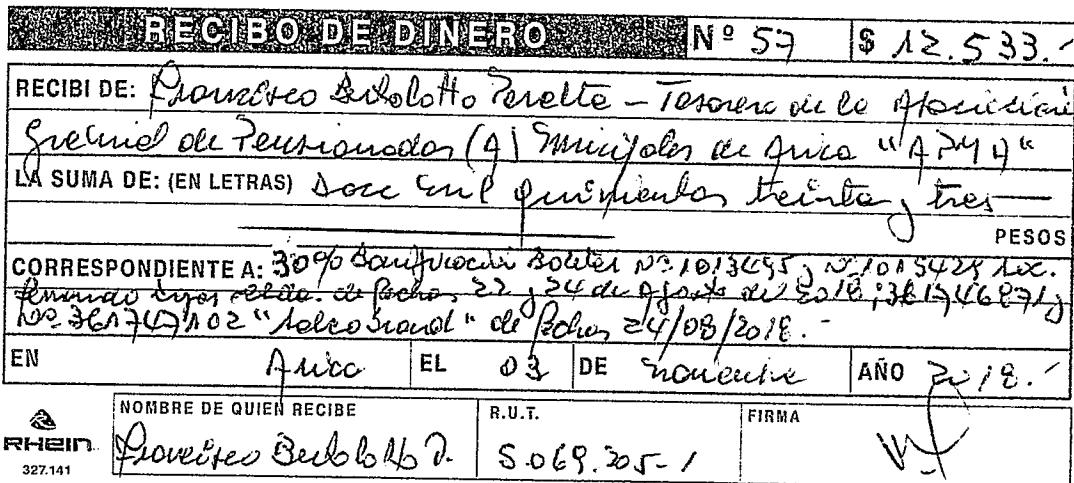 RECIBO DE DINERO Nº 57 $ 12.533.-
RECIBI DE: Francisco Bertolotto Peralta - Tesorero de la Asociación
Gremial de Pensionados (A) Municipales de Arica "APMA"
LA SUMA DE: (EN LETRAS) Doce mil quinientos treinta y tres
PESOS
CORRESPONDIENTE A: 30% Bonificación Boletas Nº 1013495 y Nº 1015429 Soc.
Fernando Ltda. de fechas 22 y 24 de Agosto del 2018; 361746871 y
Nº 361747102 "Salcobrand" de fechas 24/08/2018.-
EN Arica EL 03 DE noviembre AÑO 2018.-
NOMBRE DE QUIEN RECIBE R.U.T. FIRMA
RHEIN Francisco Bertolotto P. 5.069.205-1
327.141